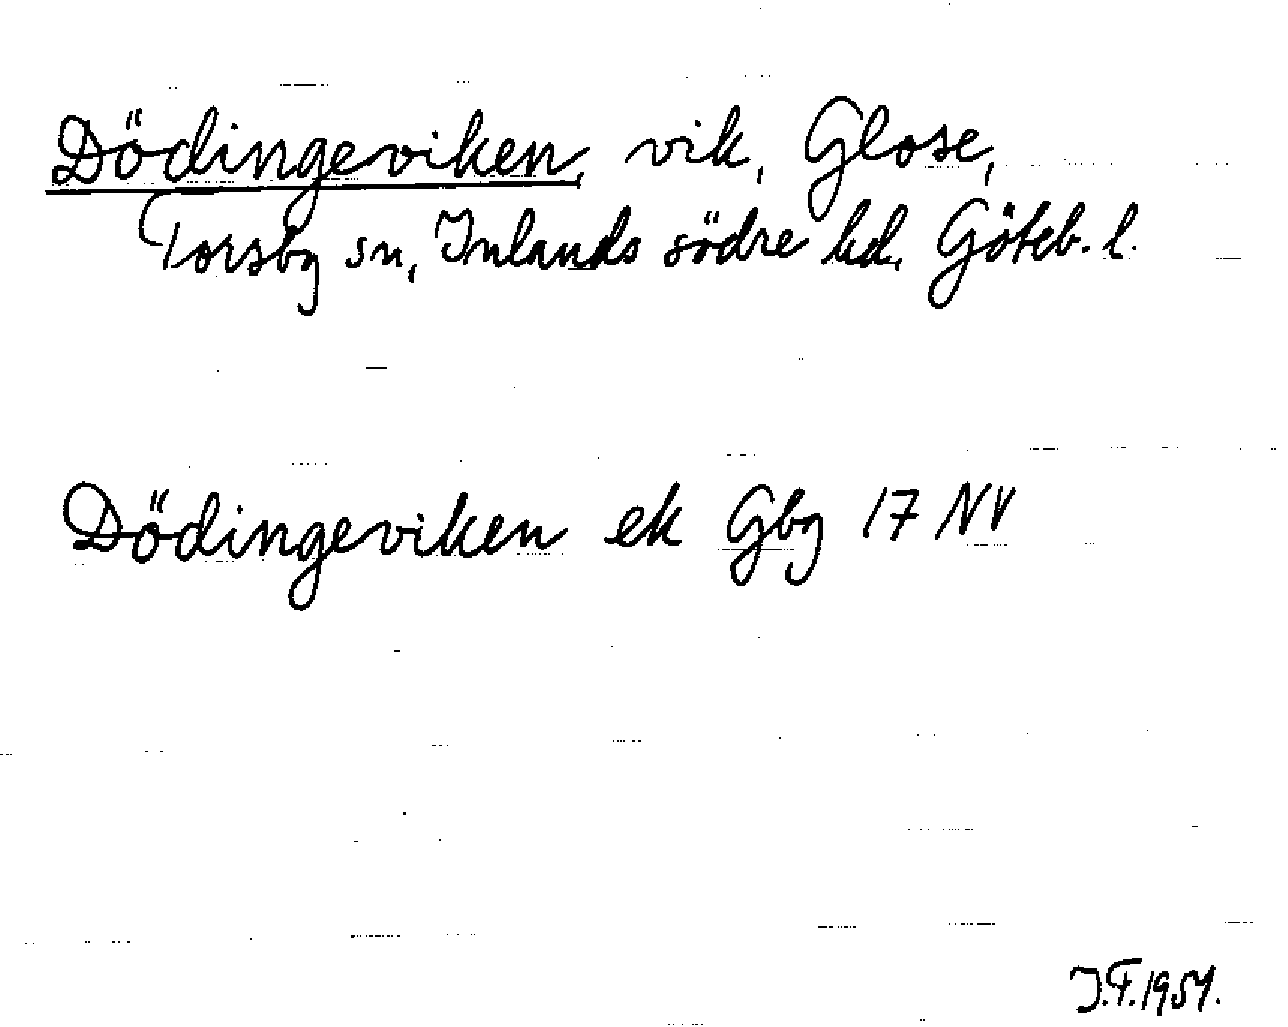 Dödingeviken, vik, Glose,
Torsby sn, Inlands södre hd, Göteb. l.
Dödingeviken ek Gbg 17 NV
J.F. 1957.